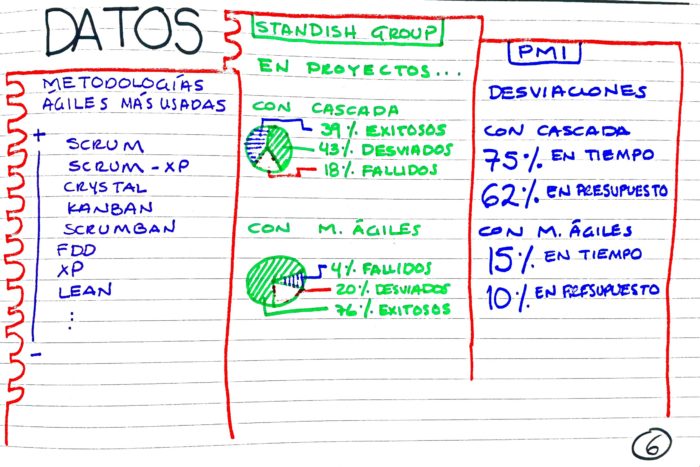 DATOS
METODOLOGÍAS
AGILES MÁS USADAS
+
SCRUM
SCRUM - XP
CRYSTAL
KANBAN
SCRUMBAN
FDD
XP
LEAN
⋮
-
STANDISH GROUP
EN PROYECTOS...
CON CASCADA
39% EXITOSOS
43% DESVIADOS
18% FALLIDOS
CON M. ÁGILES
4% FALLIDOS
20% DESVIADOS
76% EXITOSOS
PMI
DESVIACIONES
CON CASCADA
75% EN TIEMPO
62% EN PRESUPUESTO
CON M. ÁGILES
15% EN TIEMPO
10% EN PRESUPUESTO
6